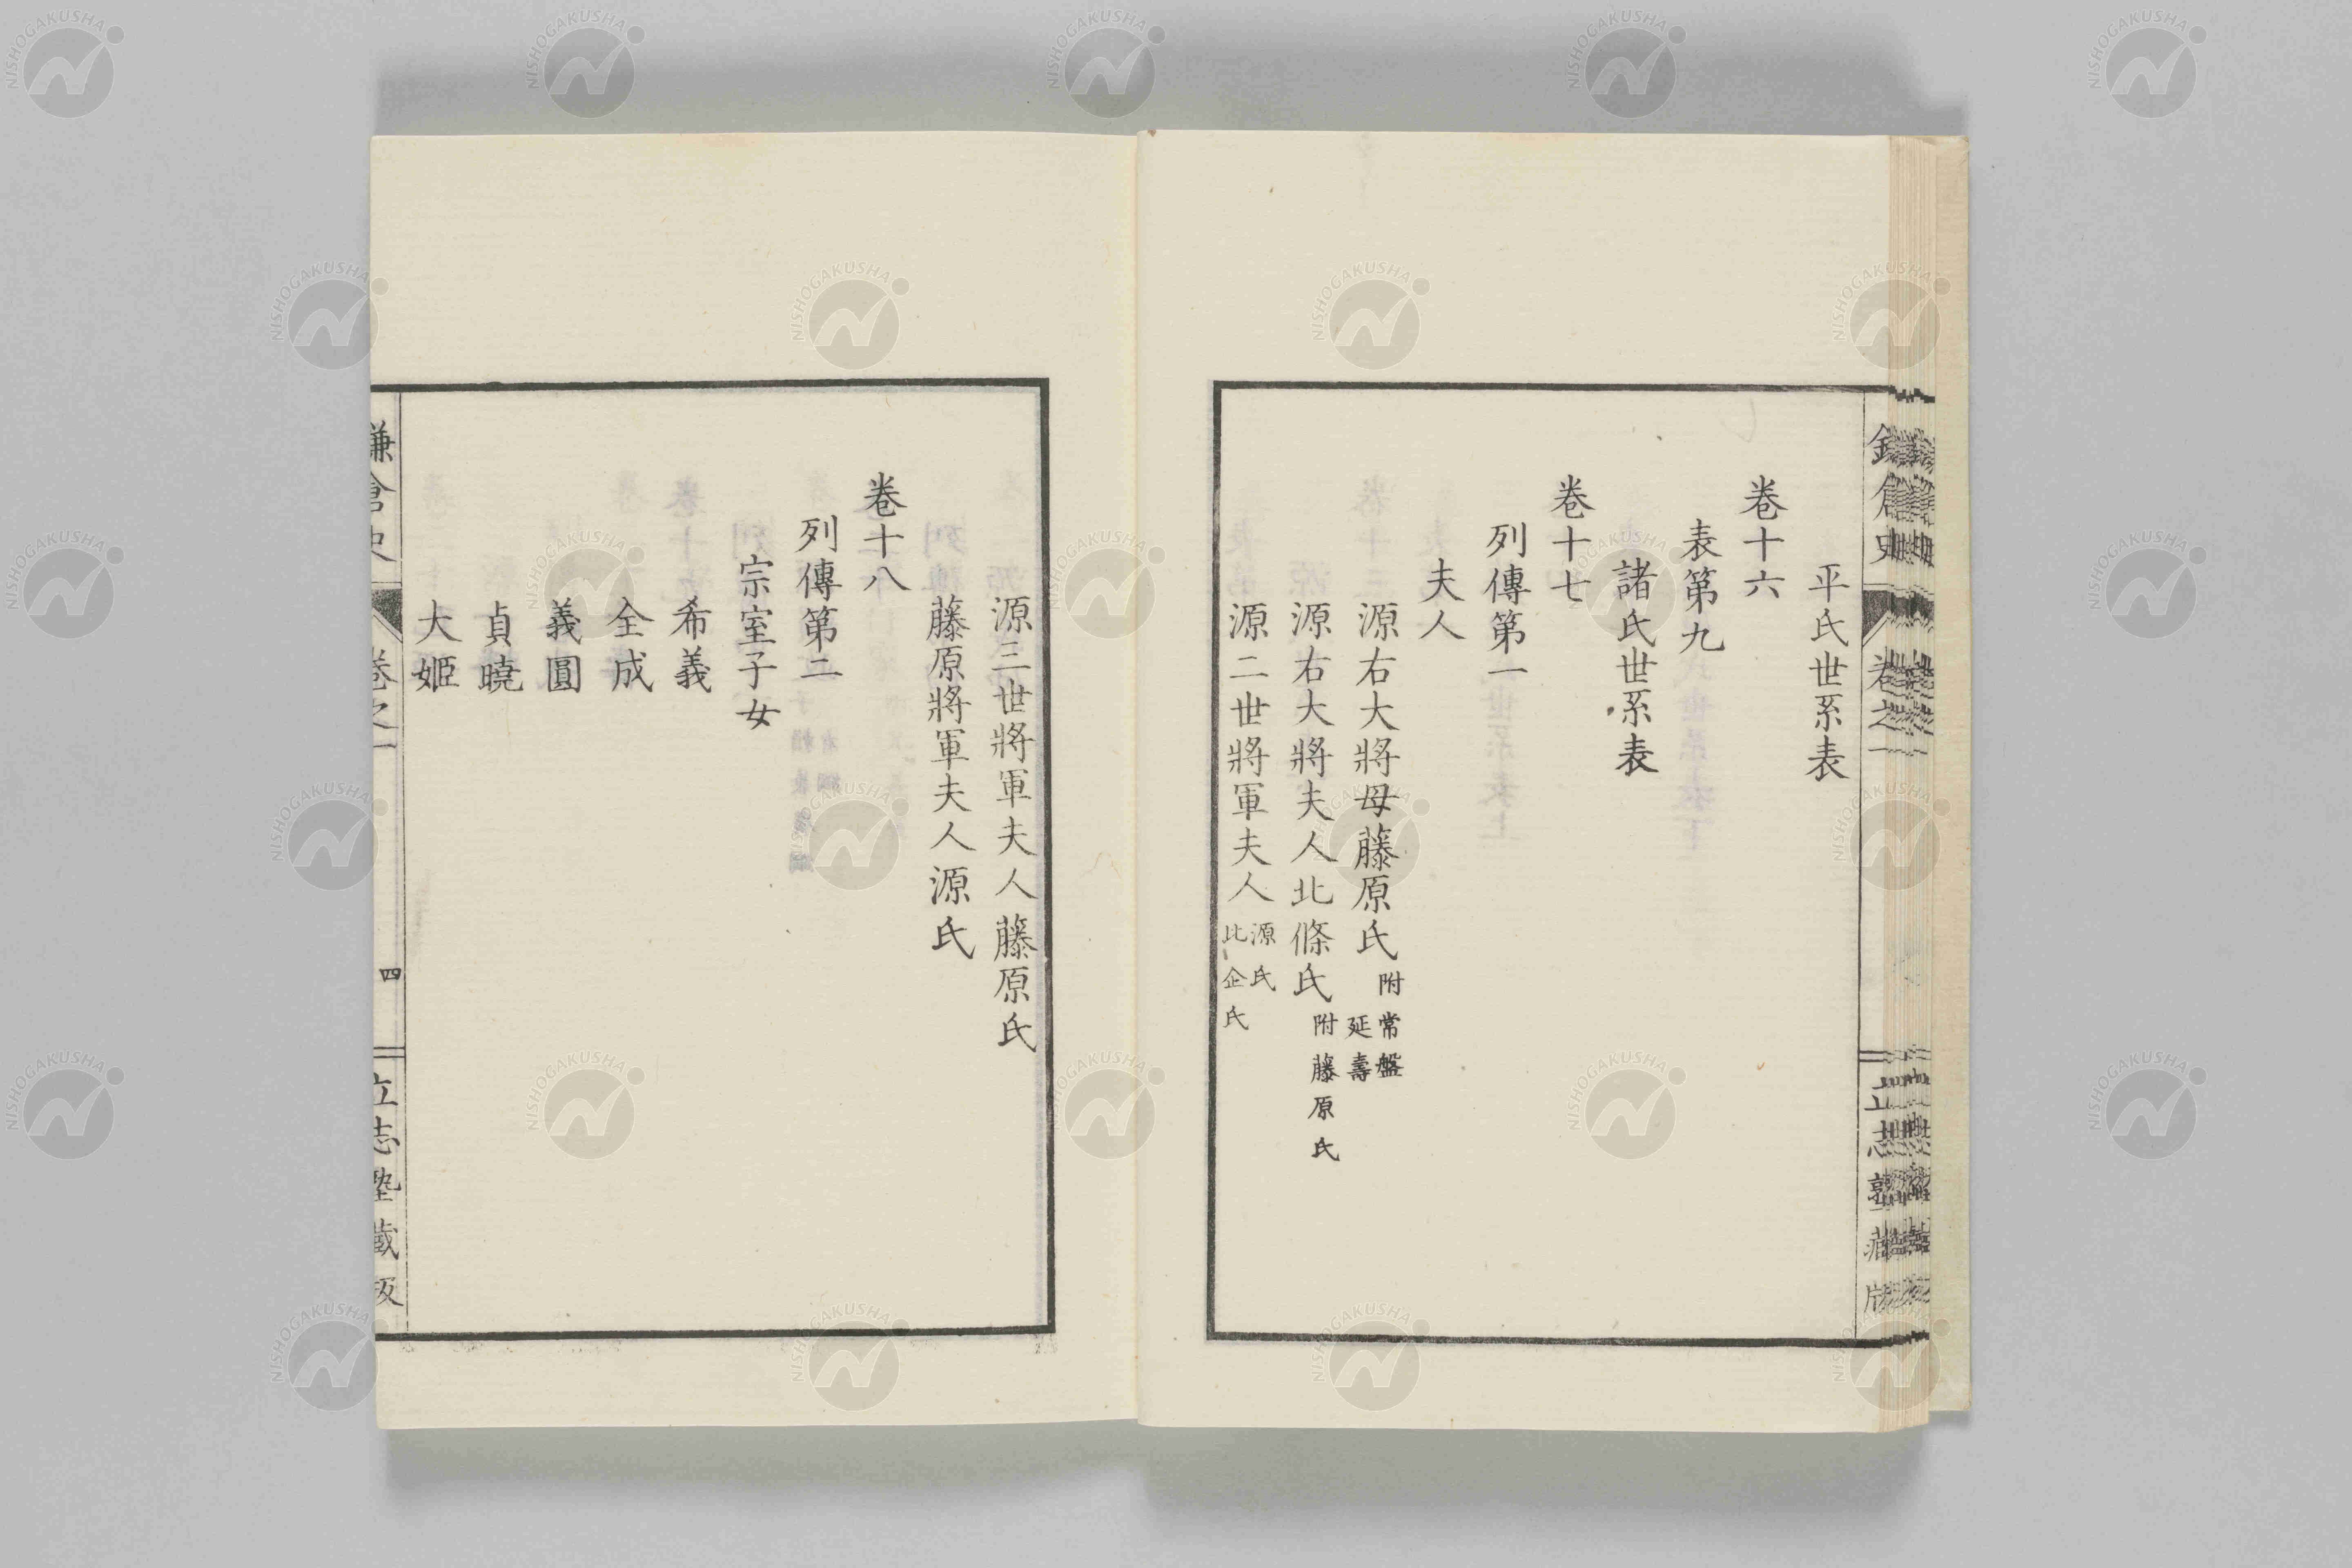 平氏世系表
卷十六
表第九
諸氏世系表
卷十七
列傳第一
夫人
源右大將母藤原氏 附常盤 延壽
源右大將夫人北條氏 附藤原氏
源二世將軍夫人 源氏 比企氏
源三世將軍夫人藤原氏
藤原將軍夫人源氏
卷十八
列傳第二
宗室子女
希義
全成
義圓
貞曉
大姬
鎌倉史 卷之一 四 立志塾藏版
NISHOGAKUSHA